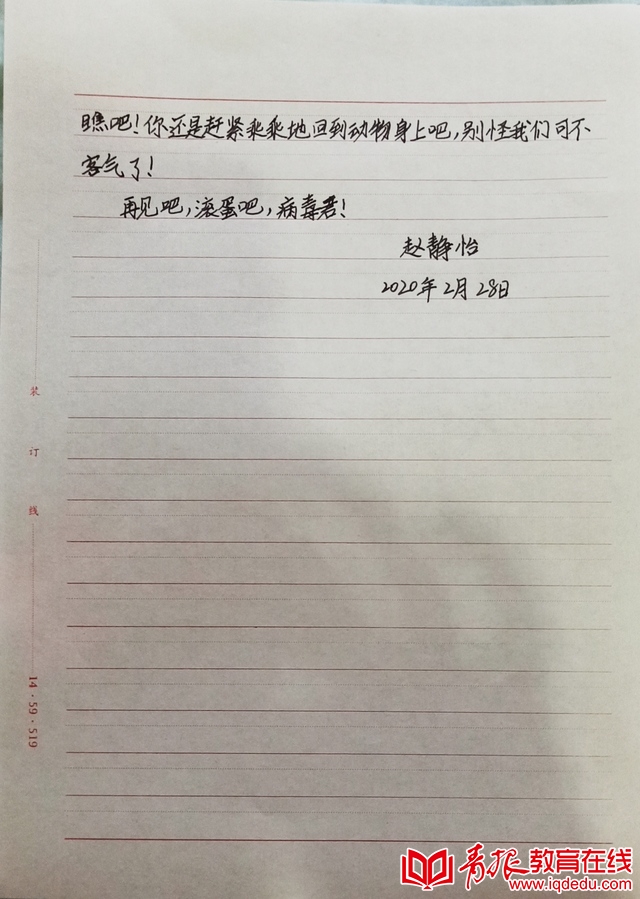 瞧吧！你还是赶紧乖乖地回到动物身上吧，别怪我们可不
客气了！
再见吧，滚蛋吧，病毒君！
赵静怡
2020年2月28日
装
订
线
14·59·519
青报教育在线
www.iqdedu.com